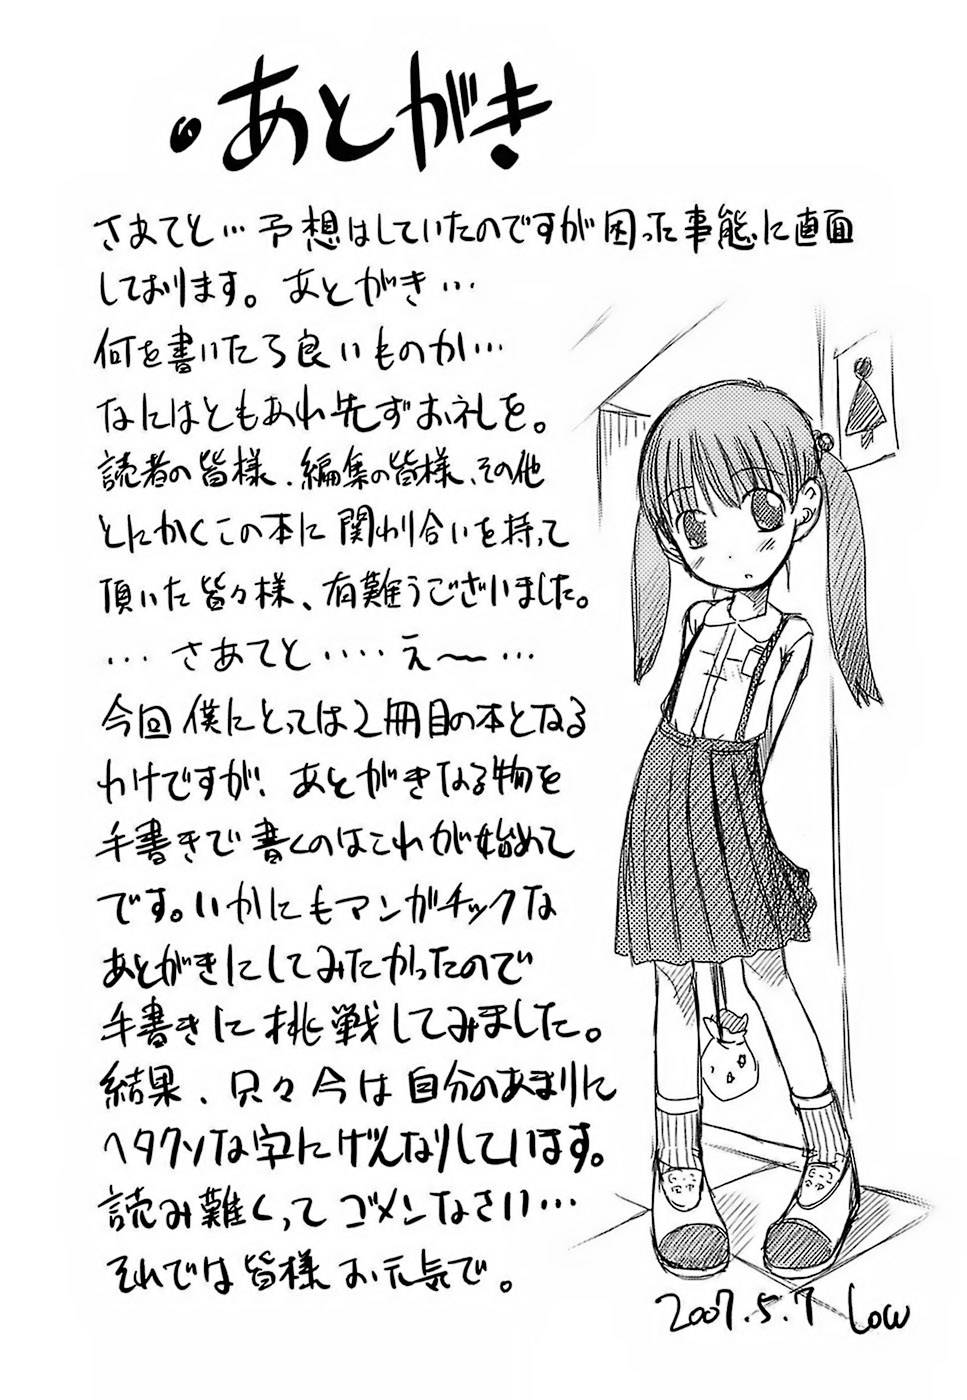 あとがき
さあてと…予想はしていたのですが困った事態に直面
しております。あとがき…
何を書いたら良いものか…
なにはともあれ先ずお礼を。
読者の皆様、編集の皆様、その他
とにかくこの本に関わり合いを持って
頂いた皆々様、有難うございました。
…さあてと‥‥え〜…
今回僕にとっては2冊目の本となる
わけですが、あとがきなる物を
手書きで書くのはこれが始めて
です。いかにもマンガチックな
あとがきにしてみたかったので
手書きに挑戦してみました。
結果、只々今は自分のあまりに
ヘタクソな字にげんなりしています。
読み難くってゴメンなさい…
それでは皆様お元気で。
2007.5.7 Low